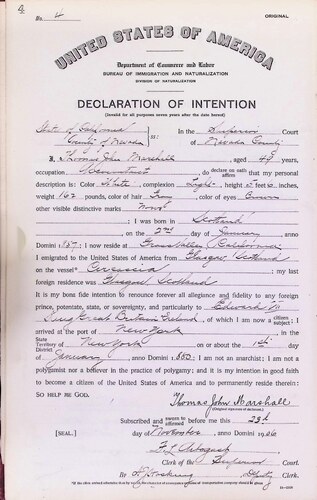 No. 4
ORIGINAL
UNITED STATES OF AMERICA
Department of Commerce and Labor
BUREAU OF IMMIGRATION AND NATURALIZATION
DIVISION OF NATURALIZATION
DECLARATION OF INTENTION
(Invalid for all purposes seven years after the date hereof)
State of California
County of Nevada ss: In the Superior Court
of Nevada County
I, Thomas John Marshall, aged 49 years,
occupation Accountant, do declare on oath affirm that my personal
description is: Color White, complexion Light, height 5 feet inches,
weight 162 pounds, color of hair Gray, color of eyes
other visible distinctive marks None
; I was born in Scotland
, on the 2nd day of January, anno
Domini 1857; I now reside at Grass Valley, California
I emigrated to the United States of America from Glasgow Scotland
on the vessel Circassia; my last
foreign residence was Glasgow Scotland
It is my bona fide intention to renounce forever all allegiance and fidelity to any foreign
prince, potentate, state, or sovereignty, and particularly to Edward VII
King Great Britain Ireland, of which I am now a citizen subject; I
arrived at the port of New York, in the
State Territory District of New York on or about the 1st day
of January, anno Domini 1880; I am not an anarchist; I am not a
polygamist nor a believer in the practice of polygamy; and it is my intention in good faith
to become a citizen of the United States of America and to permanently reside therein:
SO HELP ME GOD.
Thomas John Marshall
(Original signature of declarant.)
Subscribed and sworn to affirmed before me this 23d
[SEAL.] day of November, anno Domini 1906
F L Arbogast
Clerk of the Superior Court.
By Deputy Clerk.